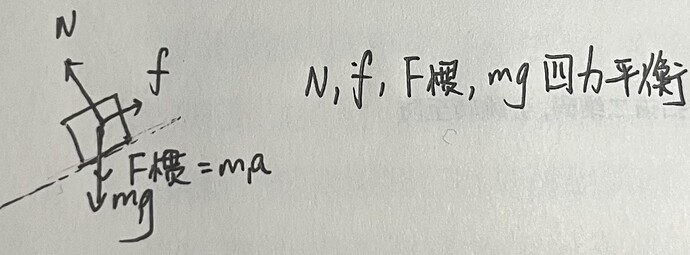 N
f
N, f, F惯, mg 四力平衡
F惯=ma
mg